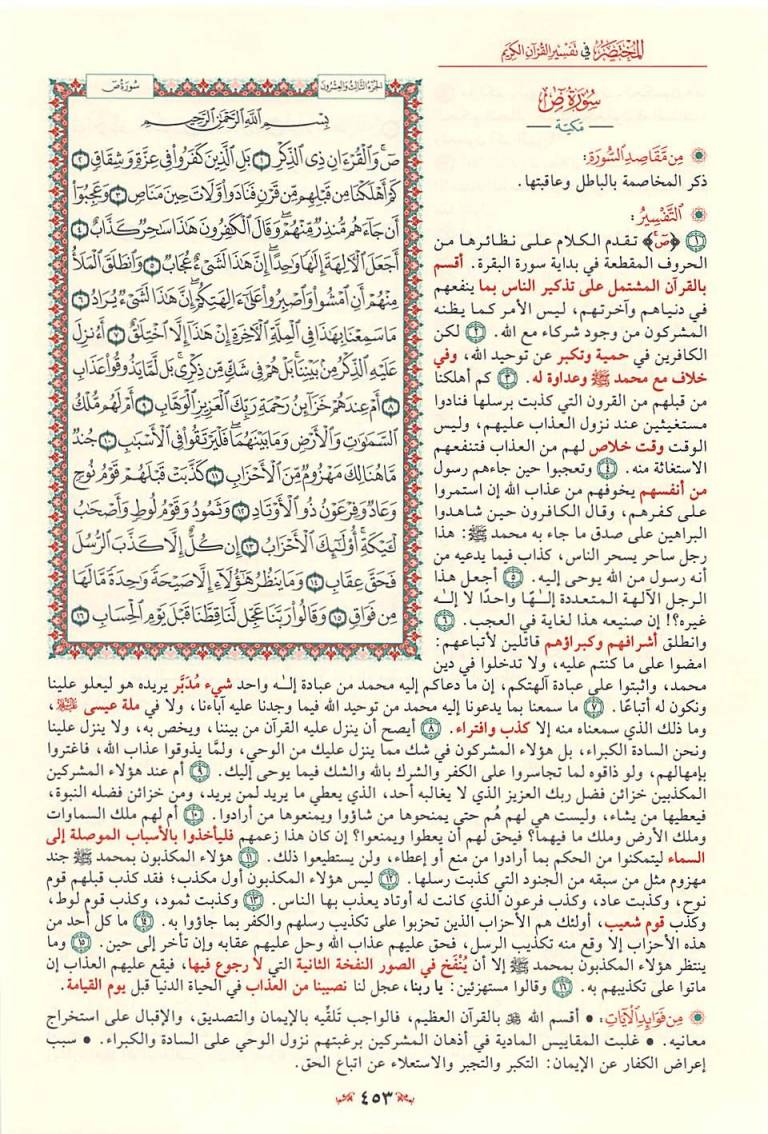 المختصر في تفسير القرآن الكريم
سُورَةُ صٓ
— مَكيّة —
من مقاصد السورة:
ذكر المخاصمة بالباطل وعاقبتها.
التفسير:
١ ﴿صٓ﴾ تقدم الكلام على نظائرها من
الحروف المقطعة في بداية سورة البقرة. أقسم
بالقرآن المشتمل على تذكير الناس بما ينفعهم
في دنياهم وآخرتهم، ليس الأمر كما يظنه
المشركون من وجود شركاء مع الله. ٢ لكن
الكافرين في حمية وتكبر عن توحيد الله، وفي
خلاف مع محمد ﷺ وعداوة له. ٣ كم أهلكنا
من قبلهم من القرون التي كذبت برسلها فنادوا
مستغيثين عند نزول العذاب عليهم، وليس
الوقت وقت خلاص لهم من العذاب فتنفعهم
الاستغاثة منه. ٤ وتعجبوا حين جاءهم رسول
من أنفسهم يخوفهم من عذاب الله إن استمروا
على كفرهم، وقال الكافرون حين شاهدوا
البراهين على صدق ما جاء به محمد ﷺ: هذا
رجل ساحر يسحر الناس، كذاب فيما يدعيه من
أنه رسول من الله يوحى إليه. ٥ أجعل هذا
الرجل الآلهة المتعددة إلـٰهًا واحدًا لا إلـٰه
غيره؟! إن صنيعه هذا لغاية في العجب. ٦
وانطلق أشرافهم وكبراؤهم قائلين لأتباعهم:
امضوا على ما كنتم عليه، ولا تدخلوا في دين
محمد، واثبتوا على عبادة آلهتكم، إن ما دعاكم إليه محمد من عبادة إلـٰه واحد شيء مُدَبَّر يريده هو ليعلو علينا
ونكون له أتباعًا. ٧ ما سمعنا بما يدعونا إليه محمد من توحيد الله فيما وجدنا عليه آباءنا، ولا في ملة عيسى عليه السلام،
وما ذلك الذي سمعناه منه إلا كذب وافتراء. ٨ أيصح أن ينزل عليه القرآن من بيننا، ويخص به، ولا ينزل علينا
ونحن السادة الكبراء، بل هؤلاء المشركون في شك مما ينزل عليك من الوحي، ولمَّا يذوقوا عذاب الله، فاغتروا
بإمهالهم، ولو ذاقوه لما تجاسروا على الكفر والشرك بالله والشك فيما يوحى إليك. ٩ أم عند هؤلاء المشركين
المكذبين خزائن فضل ربك العزيز الذي لا يغالبه أحد، الذي يعطي ما يريد لمن يريد، ومن خزائن فضله النبوة،
فيعطيها من يشاء، وليست هي لهم هُم حتى يمنحوها من شاؤوا ويمنعوها من أرادوا. ١٠ أم لهم ملك السماوات
وملك الأرض وملك ما فيهما؟ فيحق لهم أن يعطوا ويمنعوا؟ إن كان هذا زعمهم فليأخذوا بالأسباب الموصلة إلى
السماء ليتمكنوا من الحكم بما أرادوا من منع أو إعطاء، ولن يستطيعوا ذلك. ١١ هؤلاء المكذبون بمحمد ﷺ جند
مهزوم مثل من سبقه من الجنود التي كذبت رسلها. ١٢ ليس هؤلاء المكذبون أول مكذب؛ فقد كذب قبلهم قوم
نوح، وكذبت عاد، وكذب فرعون الذي كانت له أوتاد يعذب بها الناس. ١٣ وكذبت ثمود، وكذب قوم لوط،
وكذب قوم شعيب، أولئك هم الأحزاب الذين تحزبوا على تكذيب رسلهم والكفر بما جاؤوا به. ١٤ ما كل أحد من
هذه الأحزاب إلا وقع منه تكذيب الرسل، فحق عليهم عذاب الله وحل عليهم عقابه وإن تأخر إلى حين. ١٥ وما
ينتظر هؤلاء المكذبون بمحمد ﷺ إلا أن يُنْفَخ في الصور النفخة الثانية التي لا رجوع فيها، فيقع عليهم العذاب إن
ماتوا على تكذيبهم به. ١٦ وقالوا مستهزئين: يا ربنا، عجل لنا نصيبنا من العذاب في الحياة الدنيا قبل يوم القيامة.
من فوائد الآيات: • أقسم الله ﷻ بالقرآن العظيم، فالواجب تَلقِّيه بالإيمان والتصديق، والإقبال على استخراج
معانيه. • غلبت المقاييس المادية في أذهان المشركين برغبتهم نزول الوحي على السادة والكبراء. • سبب
إعراض الكفار عن الإيمان: التكبر والتجبر والاستعلاء عن اتباع الحق.
الجزء الثالث والعشرون
سورة ص
بِسْمِ ٱللَّهِ ٱلرَّحْمَٰنِ ٱلرَّحِيمِ
صٓۚ وَٱلْقُرْءَانِ ذِى ٱلذِّكْرِ ١ بَلِ ٱلَّذِينَ كَفَرُوا۟ فِى عِزَّةٍ وَشِقَاقٍ ٢
كَمْ أَهْلَكْنَا مِن قَبْلِهِم مِّن قَرْنٍ فَنَادَوا۟ وَّلَاتَ حِينَ مَنَاصٍ ٣ وَعَجِبُوٓا۟
أَن جَآءَهُم مُّنذِرٌ مِّنْهُمْۖ وَقَالَ ٱلْكَٰفِرُونَ هَٰذَا سَٰحِرٌ كَذَّابٌ ٤
أَجَعَلَ ٱلْءَالِهَةَ إِلَٰهًا وَٰحِدًاۖ إِنَّ هَٰذَا لَشَىْءٌ عُجَابٌ ٥ وَٱنطَلَقَ ٱلْمَلَأُ
مِنْهُمْ أَنِ ٱمْشُوا۟ وَٱصْبِرُوا۟ عَلَىٰٓ ءَالِهَتِكُمْۖ إِنَّ هَٰذَا لَشَىْءٌ يُرَادُ ٦
مَا سَمِعْنَا بِهَٰذَا فِى ٱلْمِلَّةِ ٱلْءَاخِرَةِ إِنْ هَٰذَآ إِلَّا ٱخْتِلَٰقٌ ٧ أَءُنزِلَ
عَلَيْهِ ٱلذِّكْرُ مِنۢ بَيْنِنَاۚ بَلْ هُمْ فِى شَكٍّ مِّن ذِكْرِىۖ بَل لَّمَّا يَذُوقُوا۟ عَذَابِ
٨ أَمْ عِندَهُمْ خَزَآئِنُ رَحْمَةِ رَبِّكَ ٱلْعَزِيزِ ٱلْوَهَّابِ ٩ أَمْ لَهُم مُّلْكُ
ٱلسَّمَٰوَٰتِ وَٱلْأَرْضِ وَمَا بَيْنَهُمَاۖ فَلْيَرْتَقُوا۟ فِى ٱلْأَسْبَٰبِ ١٠ جُندٌ
مَّا هُنَالِكَ مَهْزُومٌ مِّنَ ٱلْأَحْزَابِ ١١ كَذَّبَتْ قَبْلَهُمْ قَوْمُ نُوحٍ
وَعَادٌ وَفِرْعَوْنُ ذُو ٱلْأَوْتَادِ ١٢ وَثَمُودُ وَقَوْمُ لُوطٍ وَأَصْحَٰبُ
لْـَٔيْكَةِۚ أُو۟لَٰٓئِكَ ٱلْأَحْزَابُ ١٣ إِن كُلٌّ إِلَّا كَذَّبَ ٱلرُّسُلَ
فَحَقَّ عِقَابِ ١٤ وَمَا يَنظُرُ هَٰٓؤُلَآءِ إِلَّا صَيْحَةً وَٰحِدَةً مَّا لَهَا
مِن فَوَاقٍ ١٥ وَقَالُوا۟ رَبَّنَا عَجِّل لَّنَا قِطَّنَا قَبْلَ يَوْمِ ٱلْحِسَابِ ١٦
٤٥٣